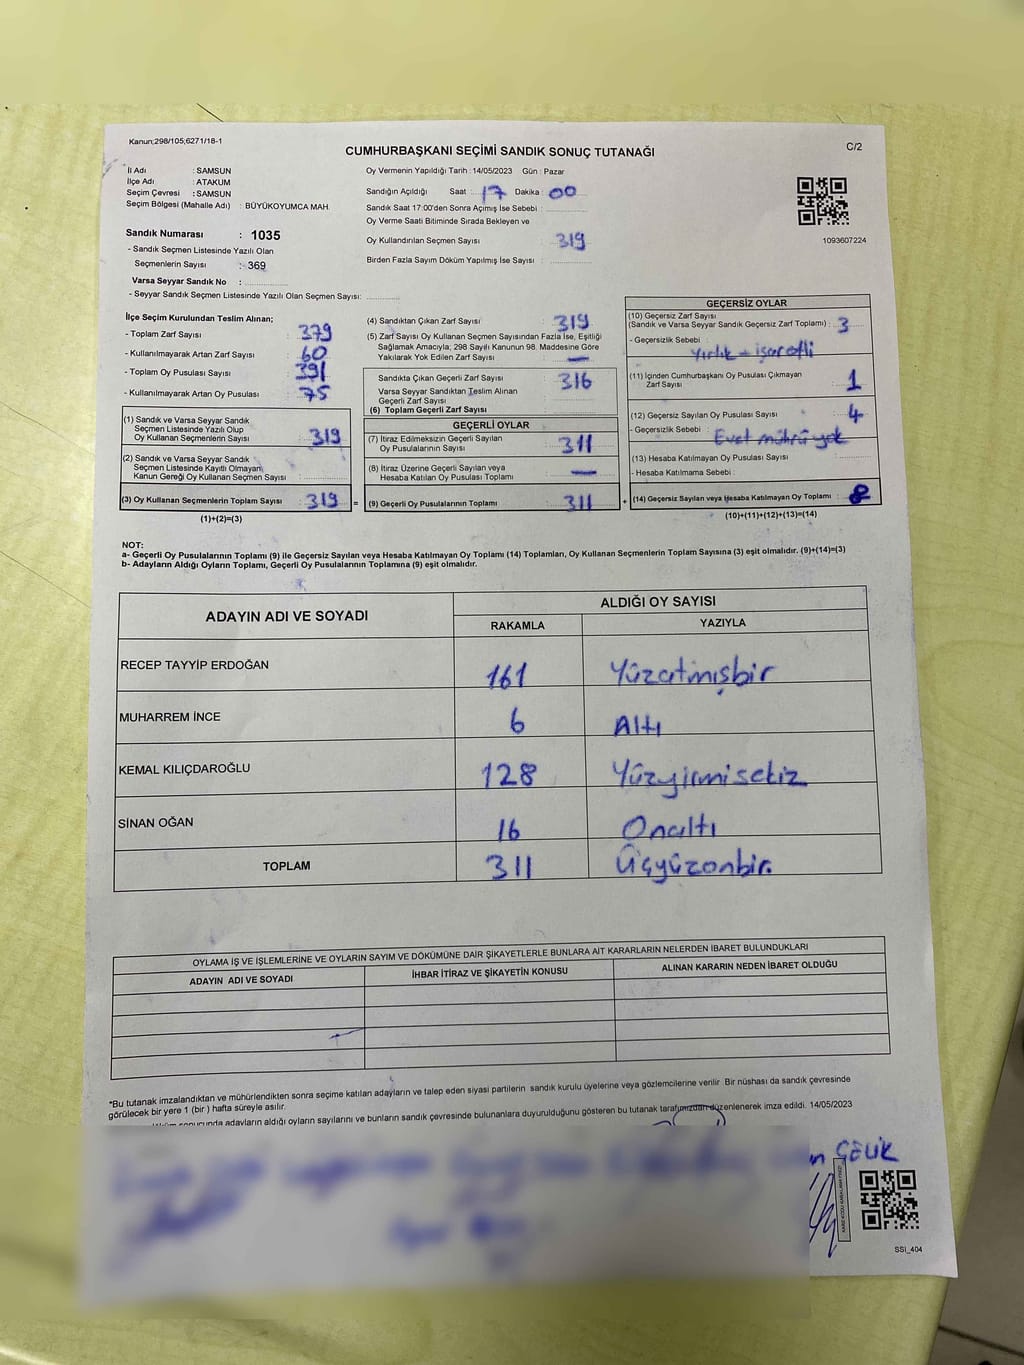 Kanun;298/105;6271/18-1
CUMHURBAŞKANI SEÇİMİ SANDIK SONUÇ TUTANAĞI
C/2
İl Adı : SAMSUN
İlçe Adı : ATAKUM
Seçim Çevresi : SAMSUN
Seçim Bölgesi (Mahalle Adı) : BÜYÜKOYUMCA MAH.
Sandık Numarası : 1035
- Sandık Seçmen Listesinde Yazılı Olan
Seçmenlerin Sayısı : 369
Varsa Seyyar Sandık No :
- Seyyar Sandık Seçmen Listesinde Yazılı Olan Seçmen Sayısı:
Oy Vermenin Yapıldığı Tarih : 14/05/2023 Gün : Pazar
Sandığın Açıldığı Saat : 17 Dakika : 00
Sandık Saat 17:00'den Sonra Açımış İse Sebebi :
Oy Verme Saati Bitiminde Sırada Bekleyen ve
Oy Kullandırılan Seçmen Sayısı 319
Birden Fazla Sayım Döküm Yapılmış İse Sayısı :
1093607224
İlçe Seçim Kurulundan Teslim Alınan;
- Toplam Zarf Sayısı : 379
- Kullanılmayarak Artan Zarf Sayısı : 60
- Toplam Oy Pusulası Sayısı : 391
- Kullanılmayarak Artan Oy Pusulası : 75
(1) Sandık ve Varsa Seyyar Sandık
Seçmen Listesinde Yazılı Olup
Oy Kullanan Seçmenlerin Sayısı : 319
(2) Sandık ve Varsa Seyyar Sandık
Seçmen Listesinde Kayıtlı Olmayan
Kanun Gereği Oy Kullanan Seçmen Sayısı :
(3) Oy Kullanan Seçmenlerin Toplam Sayısı : 319 =
(1)+(2)=(3)
(4) Sandıktan Çıkan Zarf Sayısı : 319
(5) Zarf Sayısı Oy Kullanan Seçmen Sayısından Fazla İse, Eşitliği
Sağlamak Amacıyla; 298 Sayılı Kanunun 98. Maddesine Göre
Yakılarak Yok Edilen Zarf Sayısı : —
Sandıkta Çıkan Geçerli Zarf Sayısı : 316
Varsa Seyyar Sandıktan Teslim Alınan
Geçerli Zarf Sayısı :
(6) Toplam Geçerli Zarf Sayısı :
GEÇERLİ OYLAR
(7) İtiraz Edilmeksizin Geçerli Sayılan
Oy Pusulalarının Sayısı : 311
(8) İtiraz Üzerine Geçerli Sayılan veya
Hesaba Katılan Oy Pusulası Toplamı : —
(9) Geçerli Oy Pusulalarının Toplamı : 311 +
GEÇERSİZ OYLAR
(10) Geçersiz Zarf Sayısı
(Sandık ve Varsa Seyyar Sandık Geçersiz Zarf Toplamı) : 3
- Geçersizlik Sebebi : Yırtık - işaretli
(11) İçinden Cumhurbaşkanı Oy Pusulası Çıkmayan
Zarf Sayısı : 1
(12) Geçersiz Sayılan Oy Pusulası Sayısı : 4
- Geçersizlik Sebebi : Evet mührü yok
(13) Hesaba Katılmayan Oy Pusulası Sayısı :
- Hesaba Katılmama Sebebi :
(14) Geçersiz Sayılan veya Hesaba Katılmayan Oy Toplamı : 8
(10)+(11)+(12)+(13)=(14)
NOT:
a- Geçerli Oy Pusulalarının Toplamı (9) ile Geçersiz Sayılan veya Hesaba Katılmayan Oy Toplamı (14) Toplamları, Oy Kullanan Seçmenlerin Toplam Sayısına (3) eşit olmalıdır. (9)+(14)=(3)
b- Adayların Aldığı Oyların Toplamı, Geçerli Oy Pusulalarının Toplamına (9) eşit olmalıdır.
ADAYIN ADI VE SOYADI
ALDIĞI OY SAYISI
RAKAMLA YAZIYLA
RECEP TAYYİP ERDOĞAN 161 Yüzatmışbir
MUHARREM İNCE 6 Altı
KEMAL KILIÇDAROĞLU 128 Yüzyirmisekiz
SİNAN OĞAN 16 Onaltı
TOPLAM 311 Üçyüzonbir.
OYLAMA İŞ VE İŞLEMLERİNE VE OYLARIN SAYIM VE DÖKÜMÜNE DAİR ŞİKAYETLERLE BUNLARA AİT KARARLARIN NELERDEN İBARET BULUNDUKLARI
ADAYIN ADI VE SOYADI İHBAR İTİRAZ VE ŞİKAYETİN KONUSU ALINAN KARARIN NEDEN İBARET OLDUĞU
*Bu tutanak imzalandıktan ve mühürlendikten sonra seçime katılan adayların ve talep eden siyasi partilerin sandık kurulu üyelerine veya gözlemcilerine verilir. Bir nüshası da sandık çevresinde
görülecek bir yere 1 (bir) hafta süreyle asılır.
adayların aldığı oyların sayılarını ve bunların sandık çevresinde bulunanlara duyurulduğunu gösteren bu tutanak tarafımızdan düzenlenerek imza edildi. 14/05/2023
ÇELİK
SSI_404